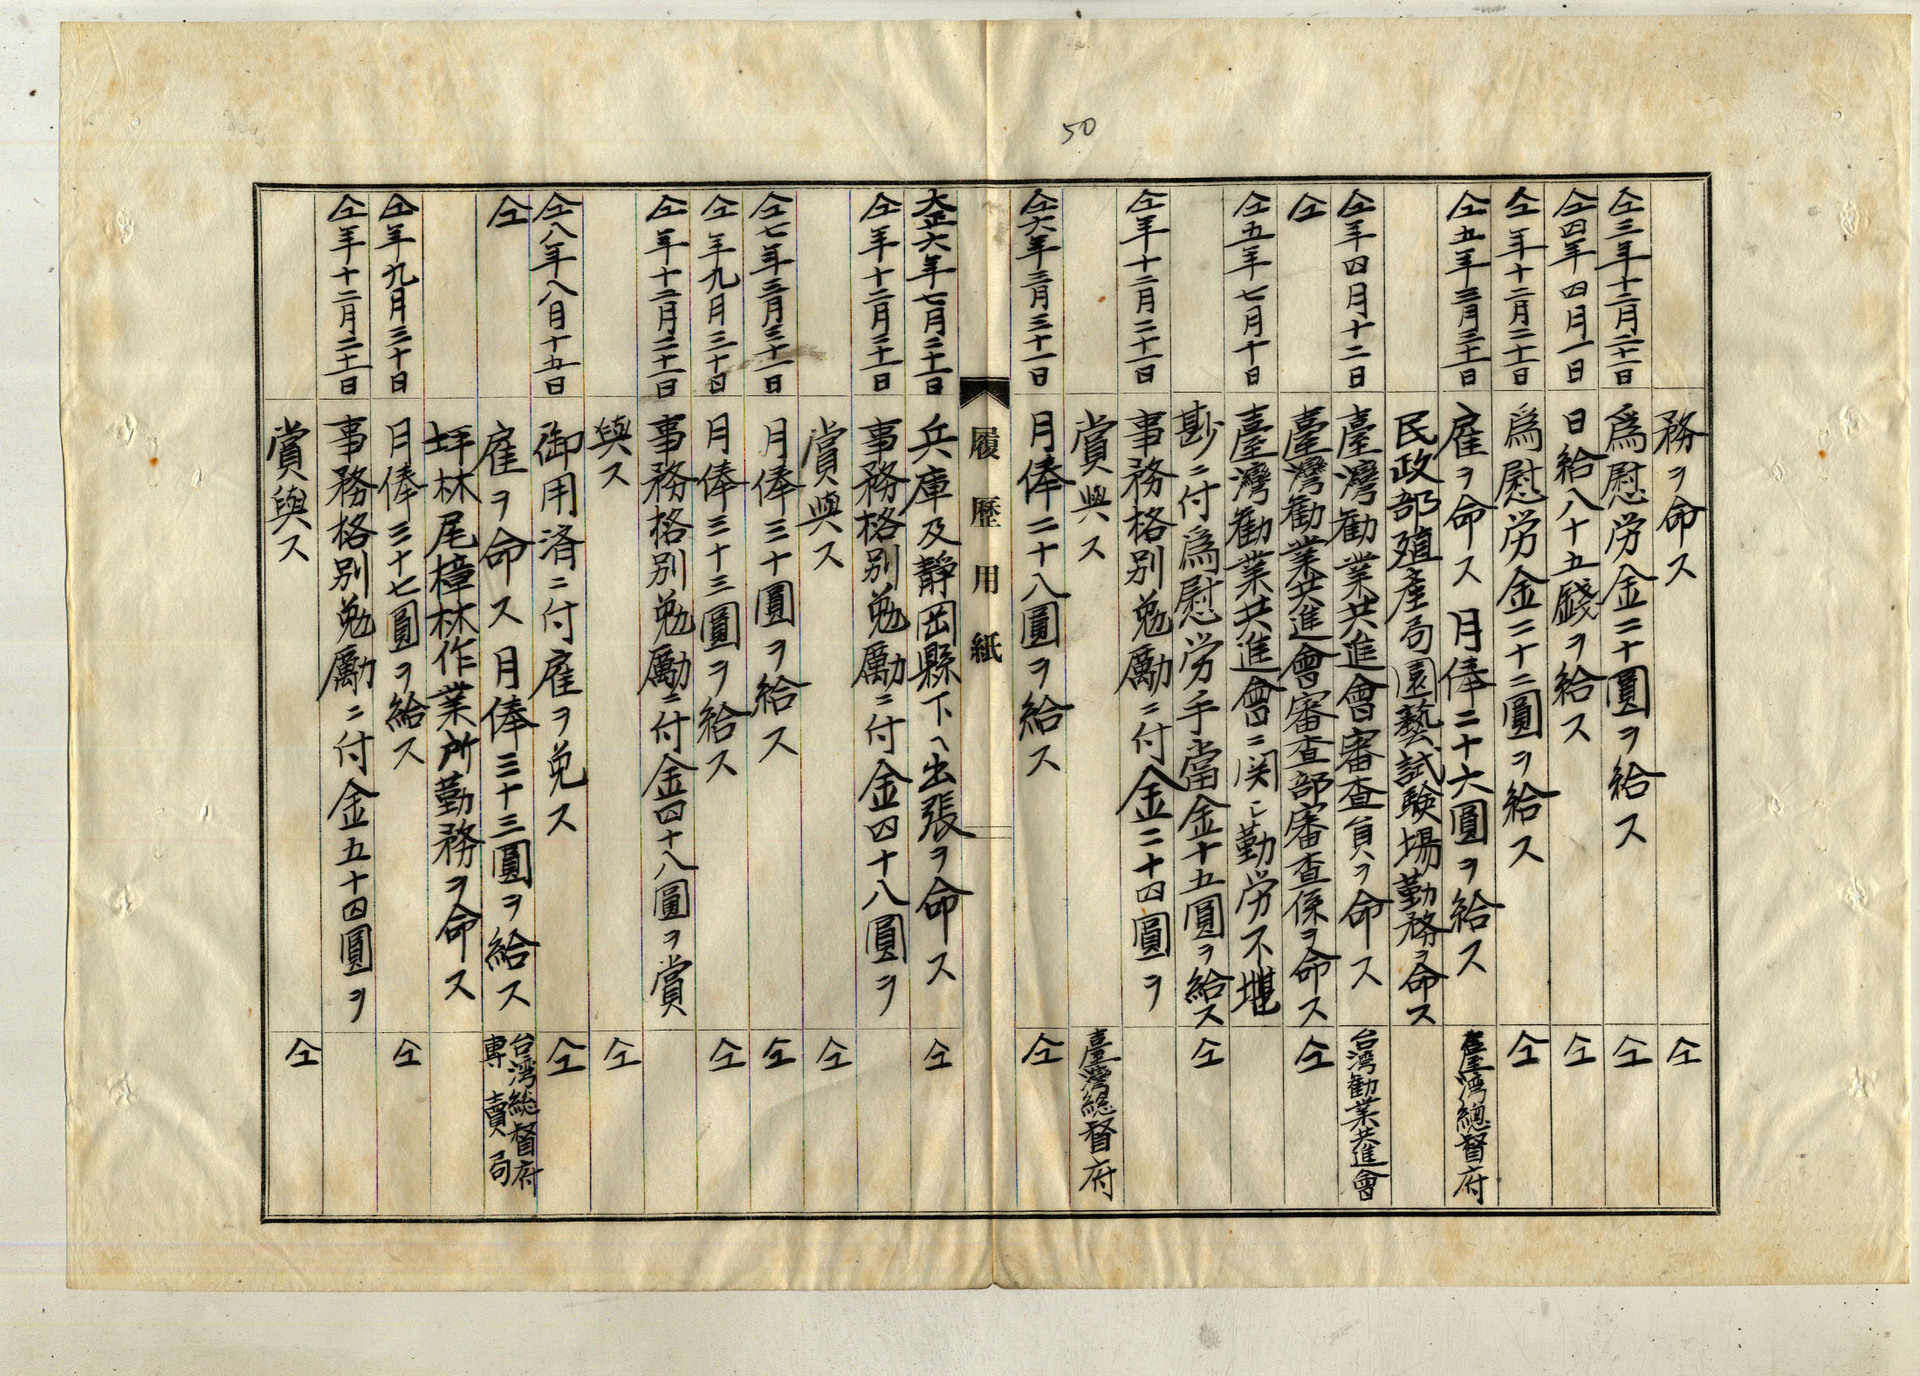 50
務ヲ命ス 仝
仝三年十二月二十一日 爲慰労金二十圓ヲ給ス 仝
仝四年四月一日 日給八十五錢ヲ給ス 仝
仝年十二月二十日 爲慰労金二十二圓ヲ給ス 仝
仝五年三月三十一日 雇ヲ命ス 月俸二十六圓ヲ給ス 臺湾總督府
民政部殖產局園藝試験場勤務ヲ命ス
仝年四月十二日 臺灣勸業共進會審査員ヲ命ス 台湾勧業共進會
仝 臺灣勸業共進會審査部審査係ヲ命ス 仝
仝五年七月十日 臺灣勸業共進會ニ関シ勤労不堪
尠ニ付爲慰労手當金十五圓ヲ給ス 仝
仝年十二月二十一日 事務格別勉勵ニ付金二十四圓ヲ
賞與ス 臺灣總督府
仝六年三月三十一日 月俸二十八圓ヲ給ス 仝
履歴用紙
大正六年七月二十一日 兵庫及静岡縣下ヘ出張ヲ命ス 仝
仝年十二月二十一日 事務格別勉勵ニ付金四十八圓ヲ
賞與ス 仝
仝七年三月三十一日 月俸三十圓ヲ給ス 仝
仝年九月三十日 月俸三十三圓ヲ給ス 仝
仝年十二月二十一日 事務格別勉勵ニ付金四十八圓ヲ賞
與ス 仝
仝八年八月十五日 御用済ニ付雇ヲ免ス 仝
仝 雇ヲ命ス 月俸三十三圓ヲ給ス 台湾総督府專賣局
坪林尾樟林作業所勤務ヲ命ス
仝年九月三十日 月俸三十七圓ヲ給ス 仝
仝年十二月二十一日 事務格別勉勵ニ付金五十四圓ヲ
賞與ス 仝